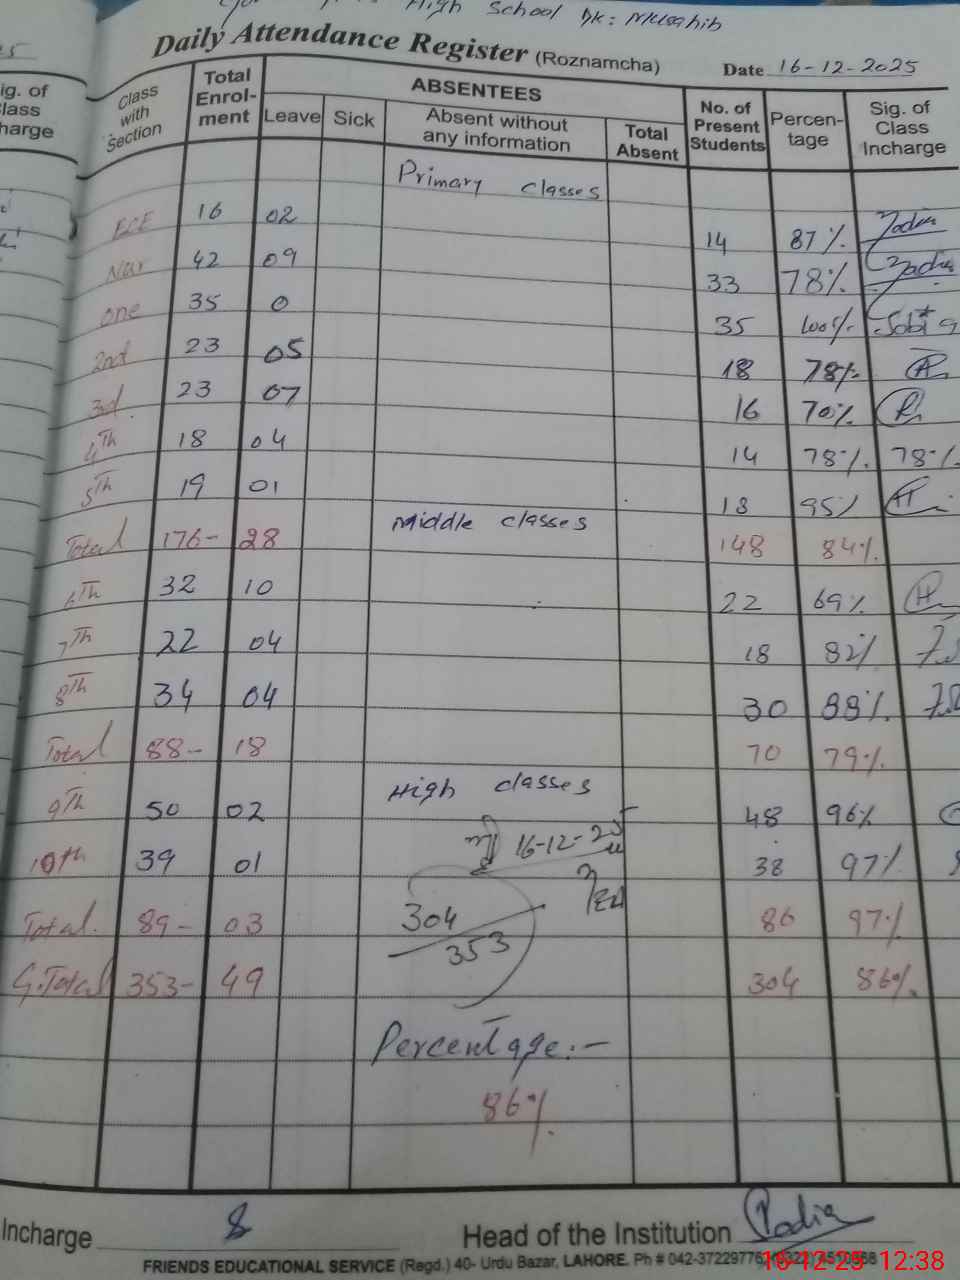 High School Dk: Musahib
Daily Attendance Register (Roznamcha) Date 16-12-2025
Class with Section Total Enrol-ment ABSENTEES Leave Sick Absent without any information Total Absent No. of Present Students Percen-tage Sig. of Class Incharge
Primary classes
ECE 16 02 14 87%
Nur 42 09 33 78%
one 35 0 35 100%
2nd 23 05 18 78%
3rd. 23 07 16 70%
4th 18 04 14 78% 78%
5th 19 01 18 95%
Middle classes
Total 176- 28 148 84%
6th 32 10 22 69%
7th 22 04 18 82%
8th 34 04 30 88%
Total 88- 18 70 79%
High classes
9th 50 02 48 96%
16-12-25
10th 39 01 38 97%
Total. 89- 03 304 86 97%
353
G.Total 353- 49 304 86%
Percentage:-
86%
Incharge Head of the Institution
FRIENDS EDUCATIONAL SERVICE (Regd.) 40- Urdu Bazar, LAHORE. Ph # 042-3722977
12:38
ig. of
lass
harge